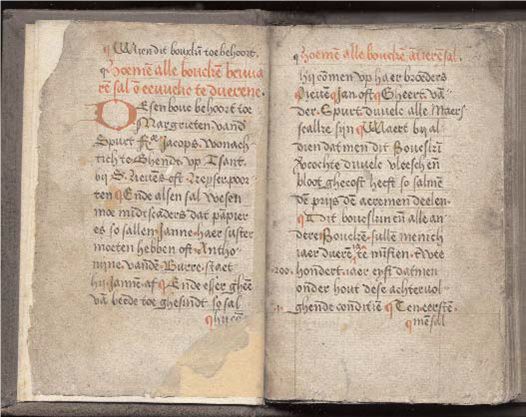 ¶ Wien dit bouxkin toe behoort.
¶ Hoemē alle bouckē bewua
rē sal ō eeuwelic te duerene.
Desen bouc behoort toe
Margrieten vand'
Spurt Fa Jacops. wonach
tich te Ghendt vp Tsant.
bij S. Lieuēs oft Keyser poor
ten ¶ Ende alsen sal wesen
moe midtscaders dat papier
es so sallen Janne haer suster
moeten hebben oft Antho
nijne vandē Burre. staet
hij Jannē af ¶ Ende esser gheē
vā beede toe ghesindt so sal
¶ hij cō
¶ hoemē alle bouckē auerē sal.
hij cōmen vp haer broeders
Lieuen ¶ Jan oft ¶ Gheert vā
der Spurt duuele alle Maers
scalke sijn ¶ Waert bij al
dien dat men dit Bouxkin
vcochte duuele vleesch eñ
bloot ghecost heeft so salmē
dē prijs dē aermen deelen
¶ Dit bouxkin eñ alle an
dere Bouckē sullē menich
iaer duerē te niksten twee
200. hondert iaer eyst datmen
onder hout dese achtervol
ghende conditiē ¶ Ten eerstē
¶ mē sal